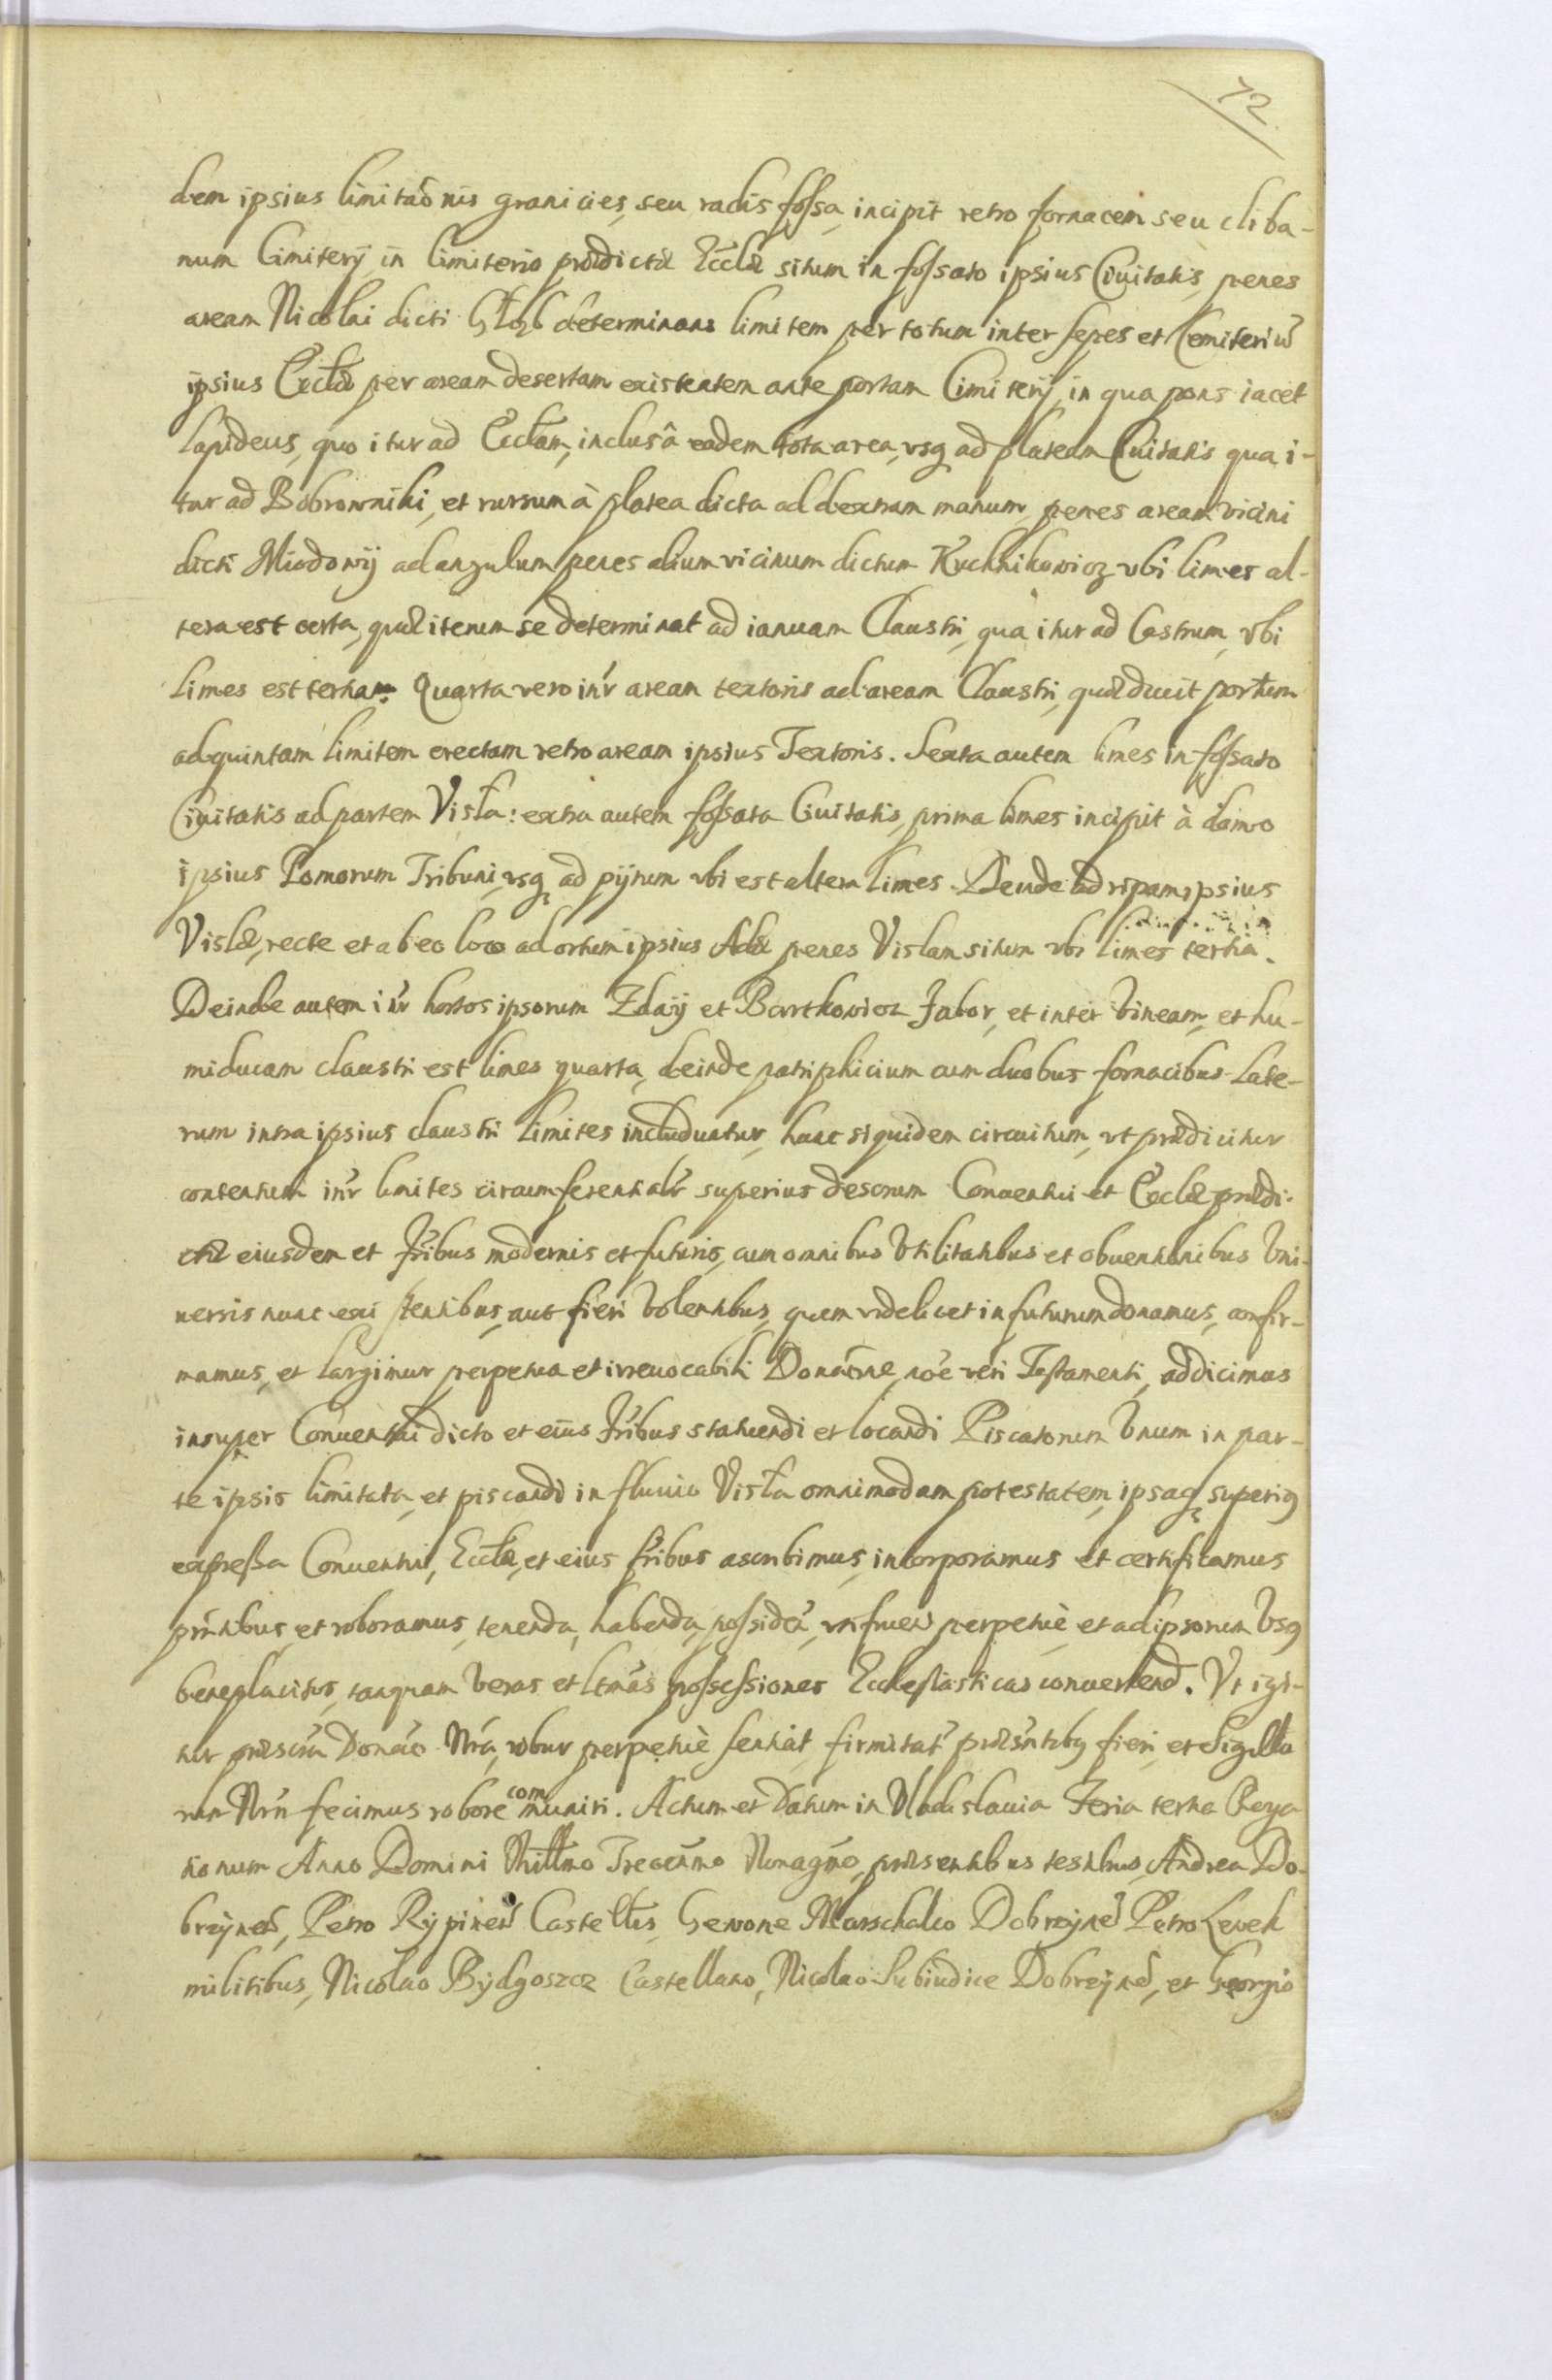 72.
dem ipsius limitaōnis granicies, seu radis fossa, incipit retro fornacem seu cliba-
num Cimiterij in Cimiterio prædictæ Ecclæ situm in fossato ipsius Ciuitatis, penes
aream Nicolai dicti determinans limitem per totum inter sepes et Cemiteriū
ipsius Ecclæ per aream desertam existentem ante portam Cimiterij, in qua pons iacet
lapideus, quo itur ad Ecclam, inclusâ eadem tota area, vsq ad plateam Ciuitatis qua i-
tur ad Bobrowniki, et rursum à platea dicta ad dextram manum, penes aream vicini
dicti Miodowij ad angulum penes alium vicinum dictum Kuchnikowicz vbi limes al-
tera est certa, quæ iterum se determinat ad ianuam Claustri, qua itur ad Castrum, vbi
limes est tertia. Quarta vero int'r aream textoris ad aream Claustri, quæ ducit portum
ad quintam limitem erectam retro aream ipsius Textoris. Sexta autem limes in fossato
Ciuitatis ad partem Visła: extra autem fossata Ciuitatis, prima limes incipit à domo
ipsius Pomorum Tribuni, vsq ad pijrum vbi est altera limes. Deinde ad ripam ipsius
Vislæ, recte et ab eo loco ad ortum ipsius Adæ penes Vislam situm vbi limes tertia.
Deinde autem int'r hortos ipsorum Zdaij et Bartkowicz Jabor, et inter Vineam, et hu-
miducam claustri est limes quarta, deinde patriphicium cum duobus fornacibus Late-
rum intra ipsius claustri limites includuntur, hanc siquidem circuitum, vt prædicitur
contentum int'r limites circumferentialr superius descrium Conuentui et Ecclæ prædi-
ctæ eiusdem et fribus modernis et futuris, cum omnibus Vtilitatibus et obuentionibus Vni-
uersis nunc existentibus, aut fieri Volentibus, quem videlicet in futurum donamus, confir-
mamus, et largimur perpetua et irreuocabili Donaōne, noe veri Testamenti, addicimus
insuper Conuentui dicto et eius fribus statuendi et locandi Piscatorem Vnum in par-
te ipsis limitata, et piscandi in fluuio Visła omnimodam potestatem, ipsaq superiq
expressa Conuentui, Ecclæ, et eius fribus ascribimus, incorporamus et certificamus
pŕntibus, et roboramus, tenenda, habenda, possideń, vtifruen perpetuè et ad ipsorum Vsq
beneplacitus, tanquam veras et ltmas possessiones Ecclesiasticas conuertend. Vt igi-
tur præscŕa Donáo Nrá, robur perpetuè sentiát firmitat́ præsńtibq fieri, et Sigillo
rum Nrń fecimus robore communiri. Actum et Datum in Vladislauia Feria tertia Roga
tionum Anno Domini Millmo Trecéńmo Nonagńo, præsentibus testibus, Andrea Do-
brzÿneń, Petro Rÿpineń Castellīs, Gewone Marschalco Dobrzÿneń Petro Lewek
militibus, Nicolao Bÿdgoszcz Castellano, Nicolao Subiudice Dobrzÿneń, et Georgio